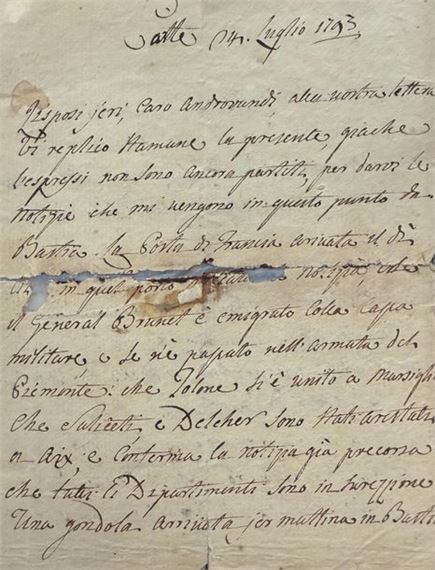 Corte 14. Luglio 1793
Risposi jeri, Caro Androvandi alla vostra lettera
Vi replico stamane la presente, giachè
l'espressi non sono ancora partiti, per darvi le
notizie che mi vengono in questo punto da
Bastia. la Posta di Francia arrivata il dì
in quel porto notizia, che
il General Brunet è emigrato colla Cassa
militare, e se n'è passato nell'armata del
Piemonte: che Tolone si è unito a Marsigli
che Saliceti e Delcher sono stati arrestati
a Aix, e conferma la notizia già precorsa
che tutti li Dipartimenti sono in insurezzione
Una gondola arrivata jer mattina in Basti